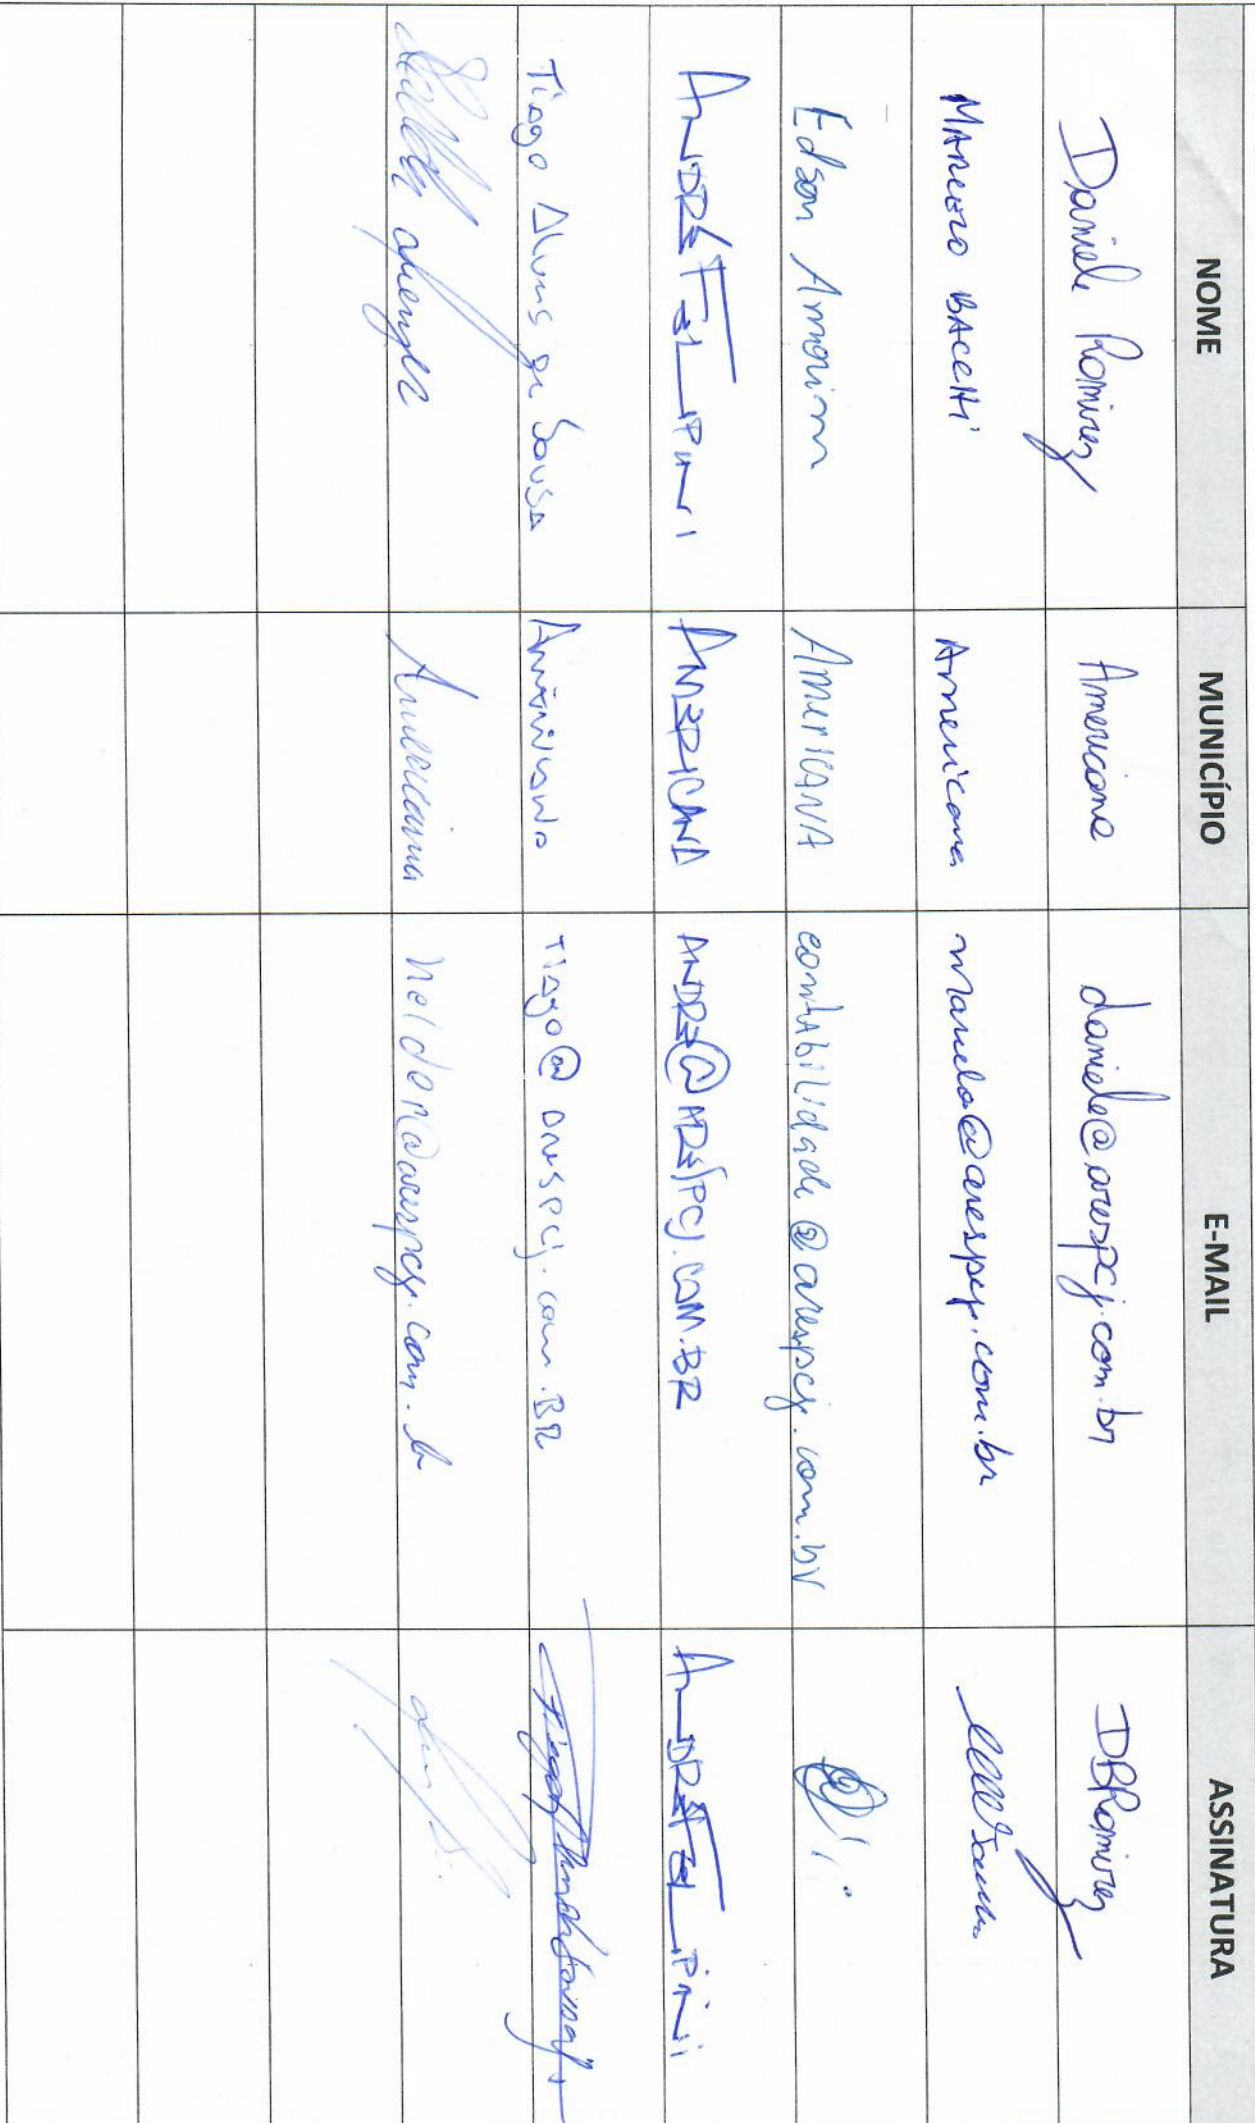 NOME MUNICÍPIO E-MAIL ASSINATURA
Daniele Ramirez Americana daniele@arespcj.com.br DBRamirez
MARCELO BACCHI Americana marcelo@arespcj.com.br
Edson Amorim AmericANA contabilidade@arespcj.com.br
ANDRÉ FELIPINI AMERICANA ANDRE@ARESPCJ.COM.BR ANDRÉ FELIPINI
Tiago Alves de Sousa Americana Tiago@arespcj.com.BR
Americana helder@arespcj.com.br